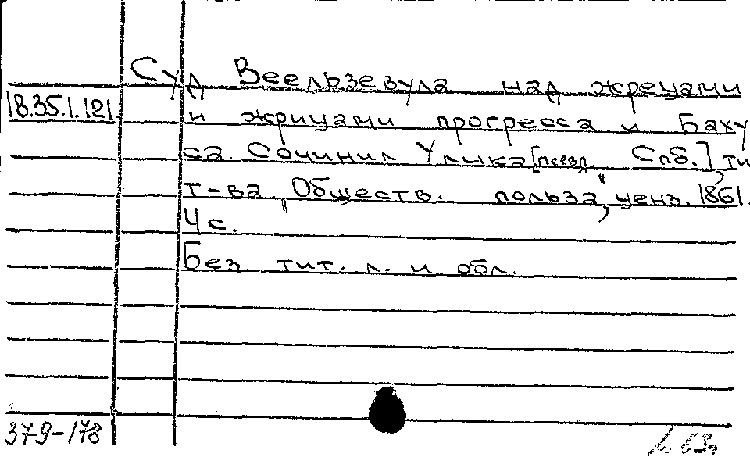 Суд Веельзевула над жрецами
18.35.1.121 и жрицами прогресса и Баху
са. Сочинил Улика [псевд. Спб.], ти
т-ва "Общеcтв. польза", ценз. 1861.
4 с.
Без тит. л. и обл.
379-178